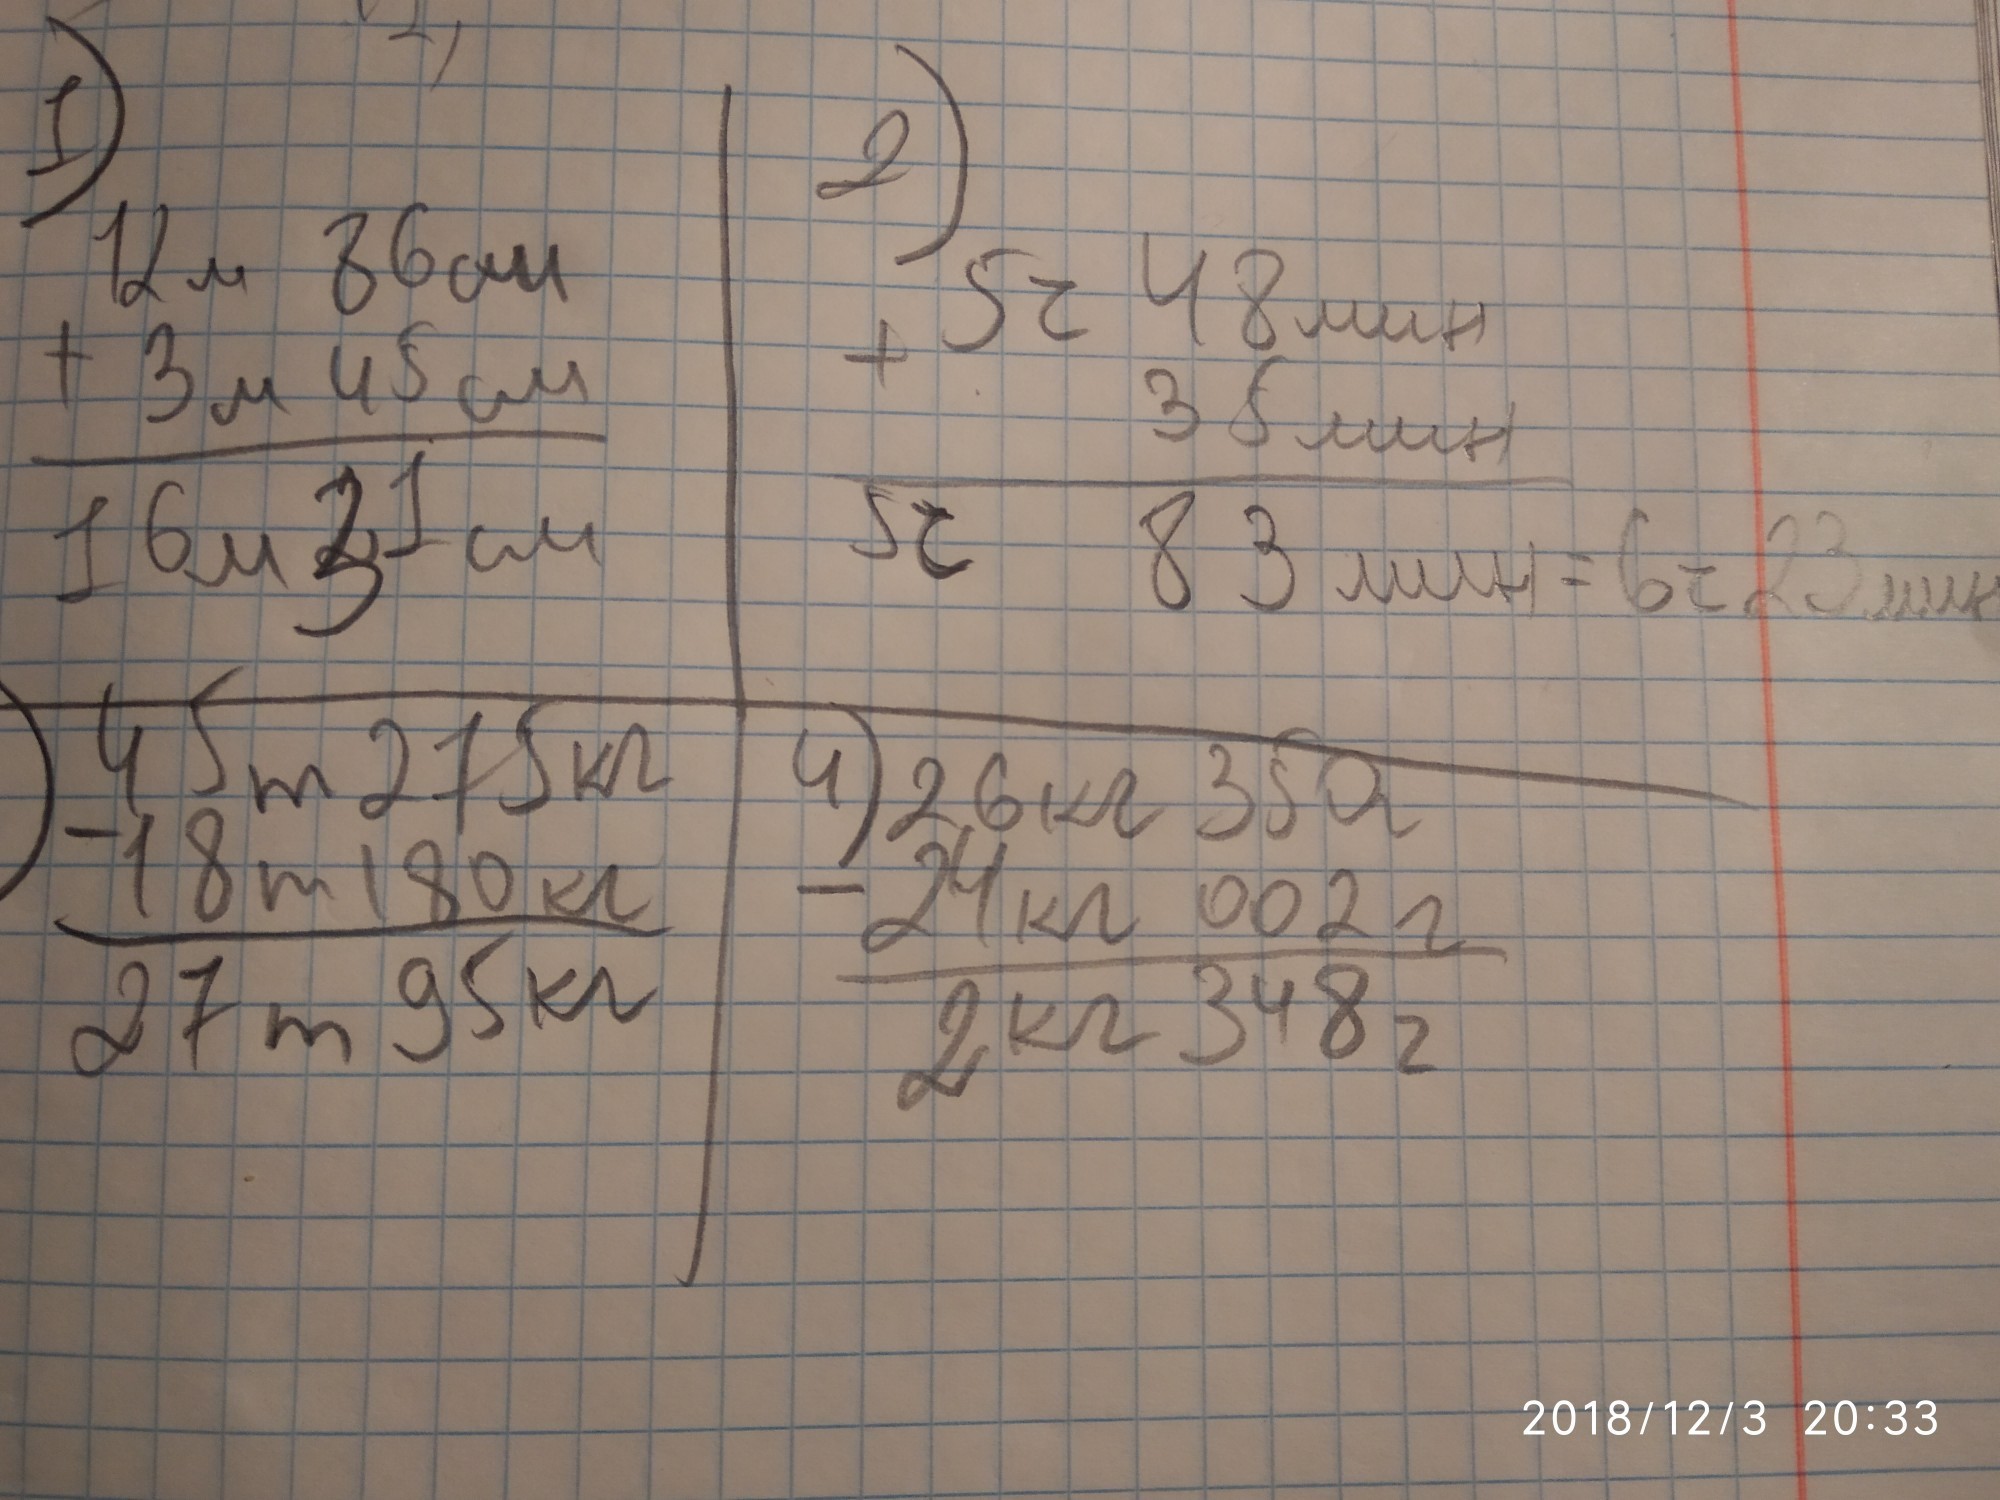 1)
12м 86см
+ 3м 45см
16м 31см
2)
5ч 48мин
+ 35мин
5ч 83мин = 6ч 23мин
)
45т 275кг
-18т 180кг
27т 95кг
4) 26кг 350г
- 24кг 002г
2кг 348г
2018/12/3 20:33